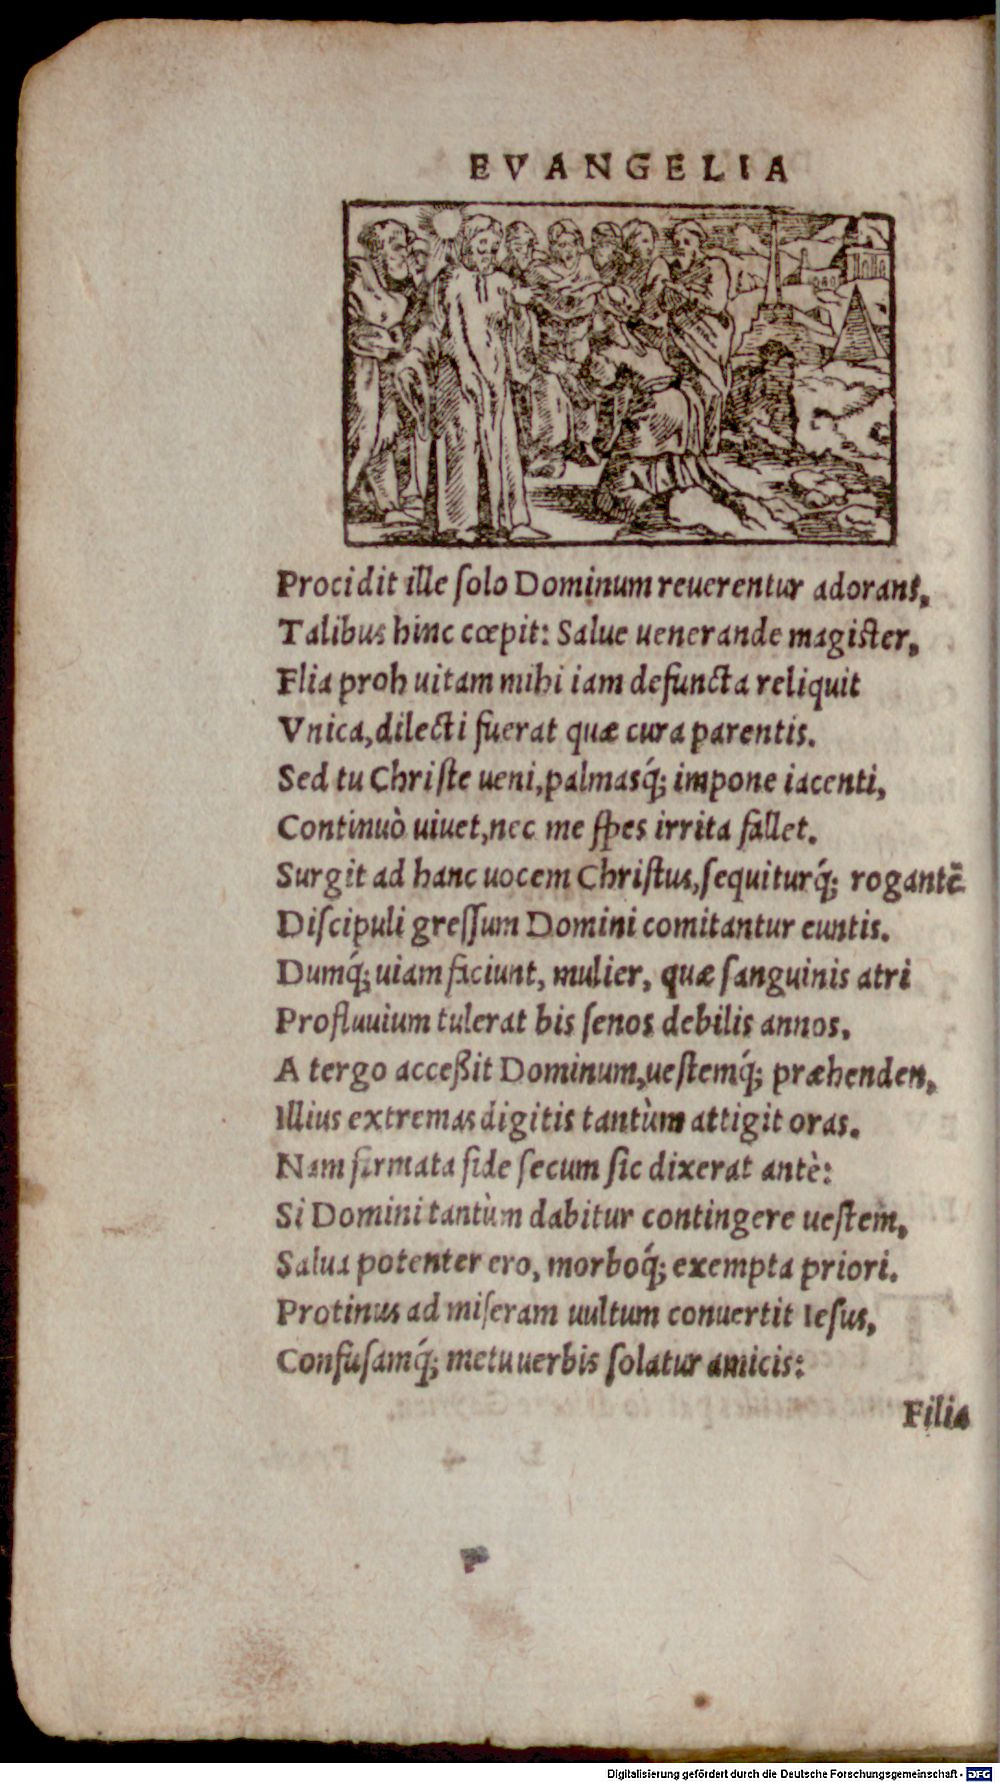 EVANGELIA
Procidit ille ſolo Dominum reuerentur adorans,
Talibus hinc cœpit: Salue uenerande magiſter,
Flia proh uitam mihi iam defuncta reliquit
Vnica, dilecti fuerat quæ cura parentis.
Sed tu Chriſte ueni, palmasq́; impone iacenti,
Continuò uiuet, nec me ſpes irrita fallet.
Surgit ad hanc uocem Chriſtus, ſequiturq́; rogantē
Diſcipuli greſſum Domini comitantur euntis.
Dumq́; uiam faciunt, mulier, quæ ſanguinis atri
Profluuium tulerat bis ſenos debilis annos,
A tergo acceßit Dominum, ueſtemq́; præhenden,
Illius extremas digitis tantùm attigit oras.
Nam firmata fide ſecum ſic dixerat antè:
Si Domini tantùm dabitur contingere ueſtem,
Salua potenter ero, morboq́; exempta priori.
Protinus ad miſeram uultum conuertit Ieſus,
Confuſamq́; metu uerbis ſolatur amicis:
Filia
Digitalisierung gefördert durch die Deutsche Forschungsgemeinschaft - DFG